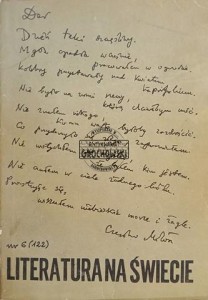 Dar
Dzień taki szczęśliwy.
Mgła opadła wcześnie, pracowałem w ogrodzie.
Kolibry przystawały nad kwiatem kaprifolium.
Nie było na ziemi rzeczy, którą chciałbym mieć.
Nie znałem nikogo, komu warto byłoby zazdrościć.
Co przydarzyło się złego, zapomniałem.
Nie wstydziłem się, że byłem kim jestem.
Nie czułem w ciele żadnego bólu.
Prostując się, widziałem niebieskie morze i żagle.
Czesław Miłosz
GROCHOWSKI
nr 6 (122)
LITERATURA NA ŚWIECIE